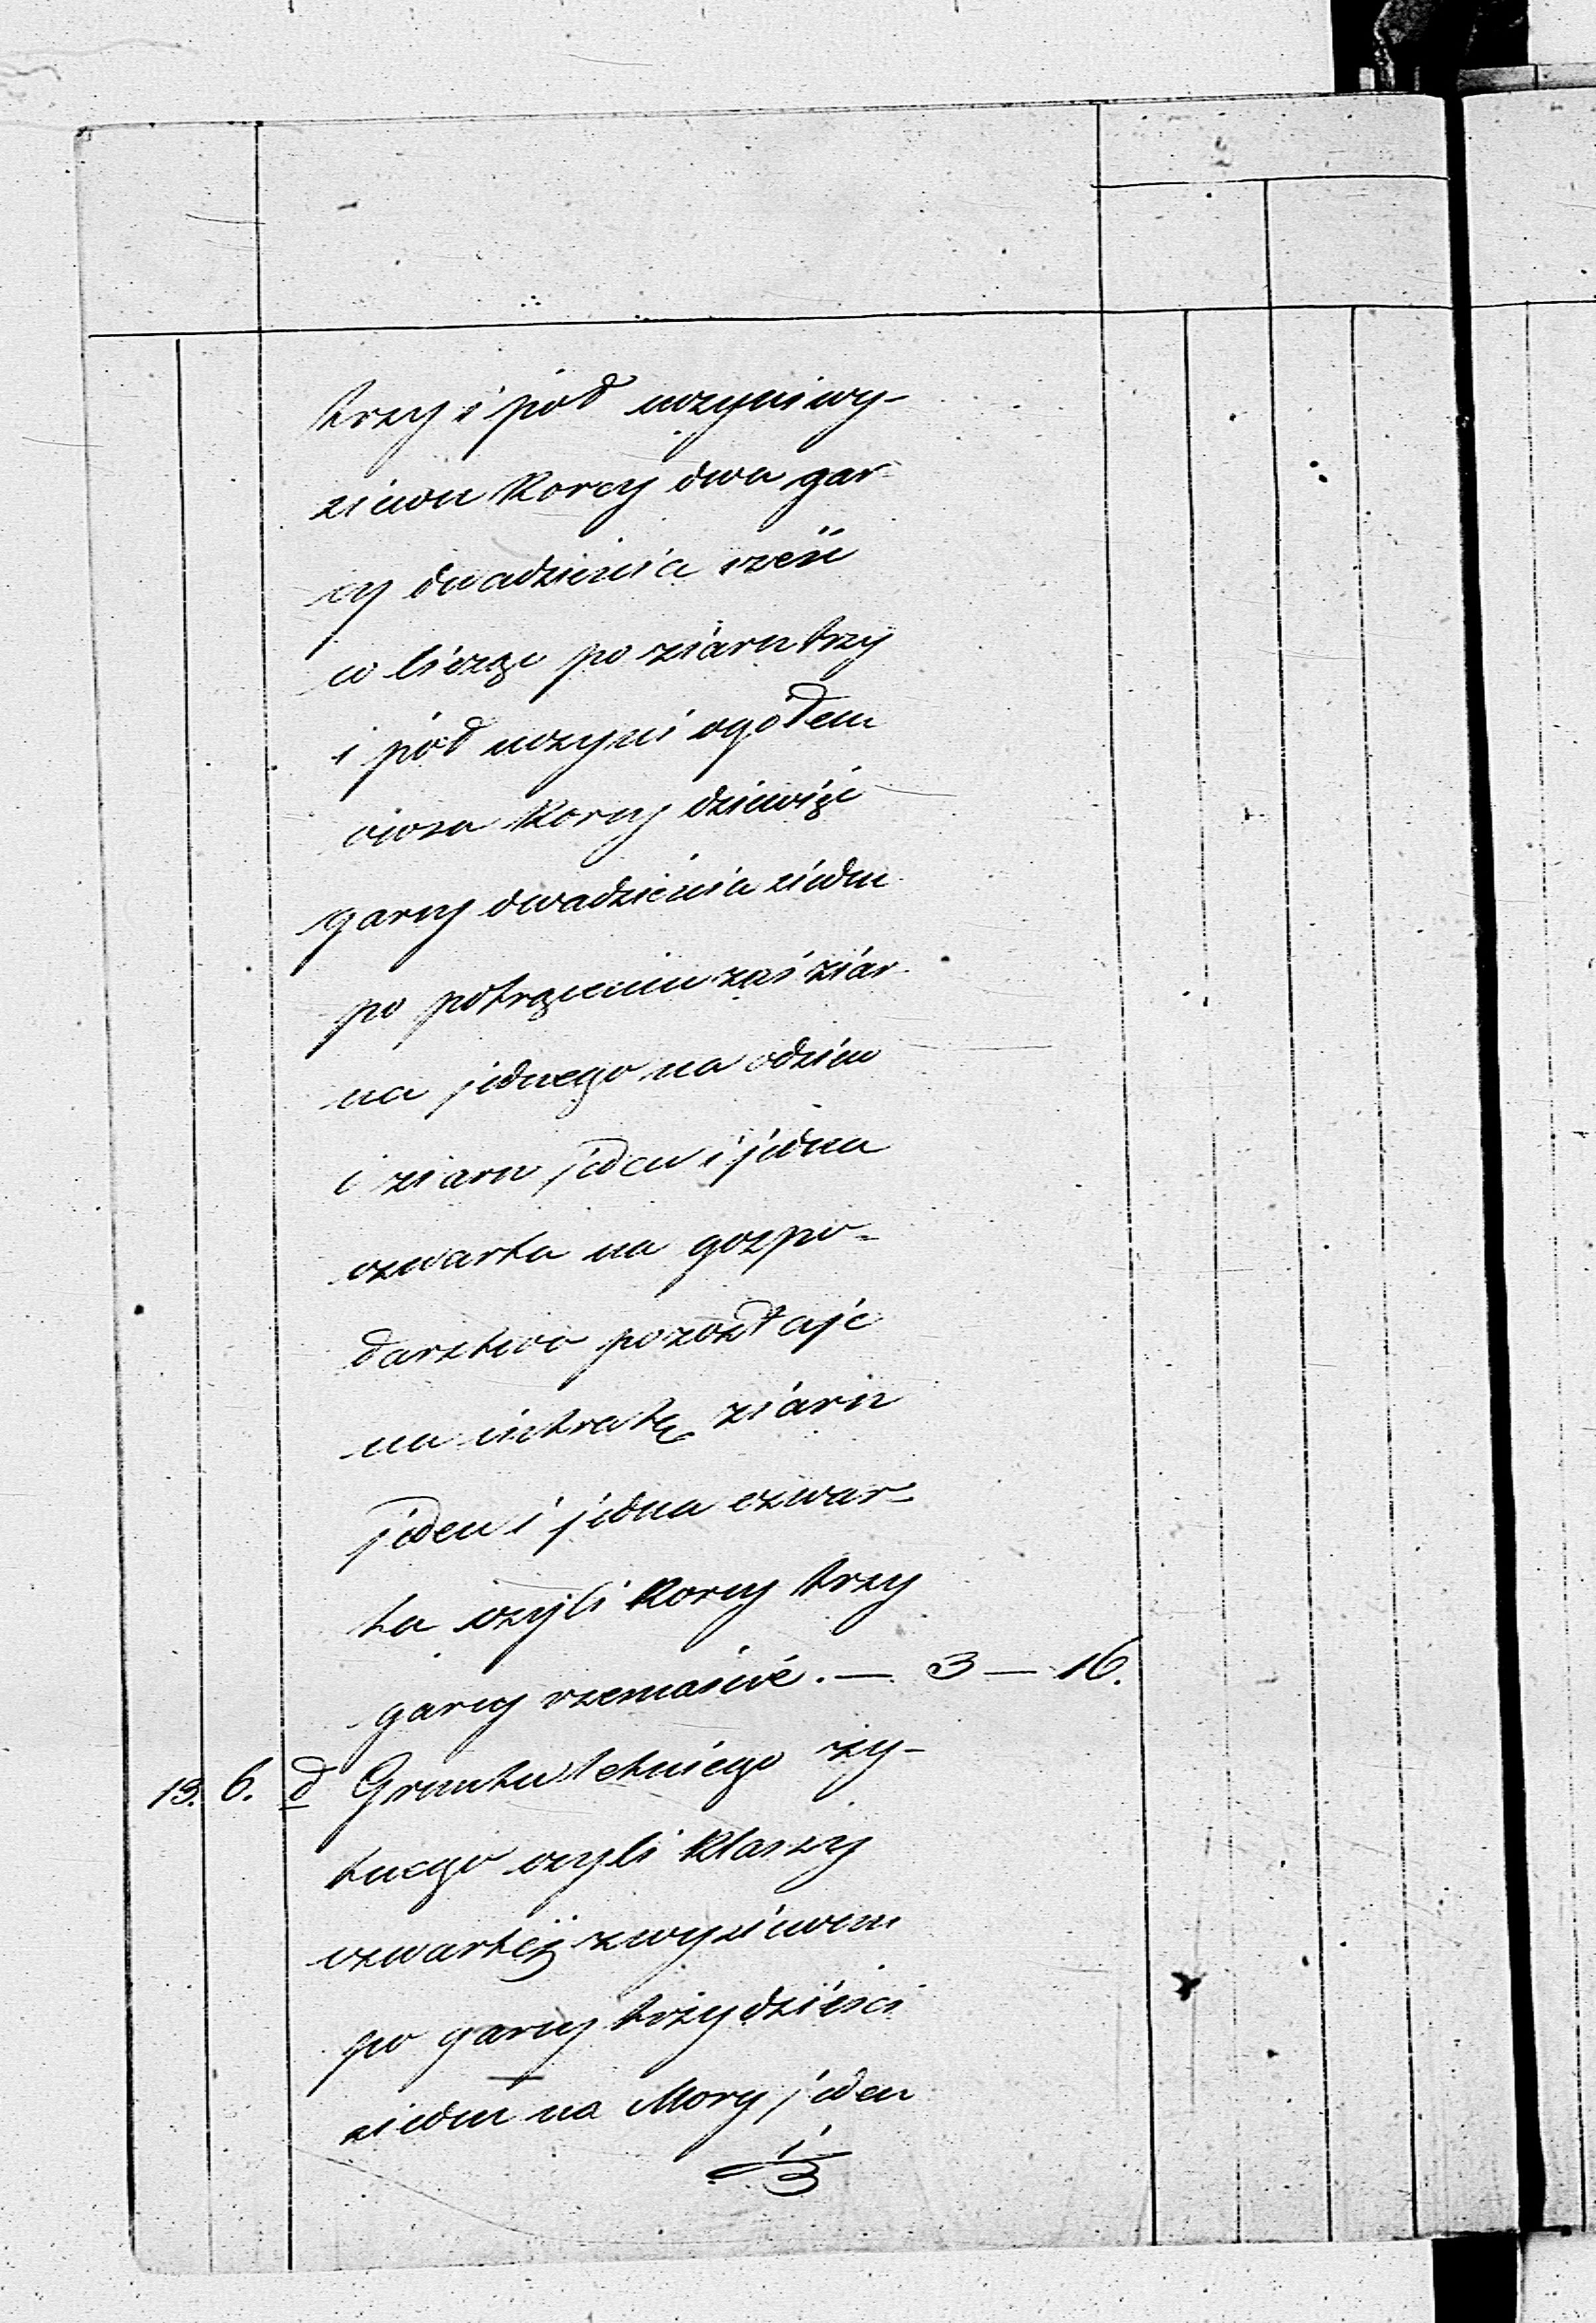 trzy i pół uczyni wy-
siewu Korcy dwa gar-
cy dwadzieścia sześć
co licząc po ziarn trzy
i pół uczyni ogółem
owsa Korcy dziewięć
garcy dwadzieścia siedm
po potrąceniu zaś ziar-
na jednego na odsiew
i ziarn jeden i jedna
czwarta na gospo-
darstwo pozostaje
na intratę ziarn
jeden i jedna czwar-
ta czyli Korcy trzy
garcy szesnaście. — 3 — 16.
13. 6. d Gruntu letniego ży-
tnego czyli Klassy
czwartéj z wysiewem
po garcy trzydzieści
siedm na Morg jeden
1/3